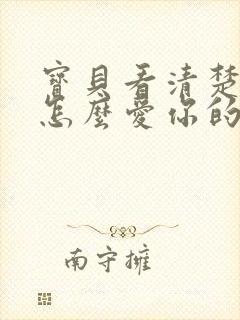 寶貝看清楚
怎麼愛你的
南守擁